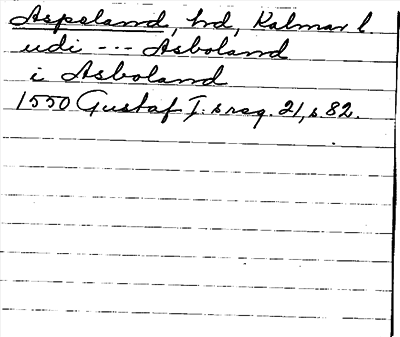 Aspeland, hd, Kalmar l.
udi --- Asboland
i Asboland
1550 Gustaf I: s reg. 21, s. 82.